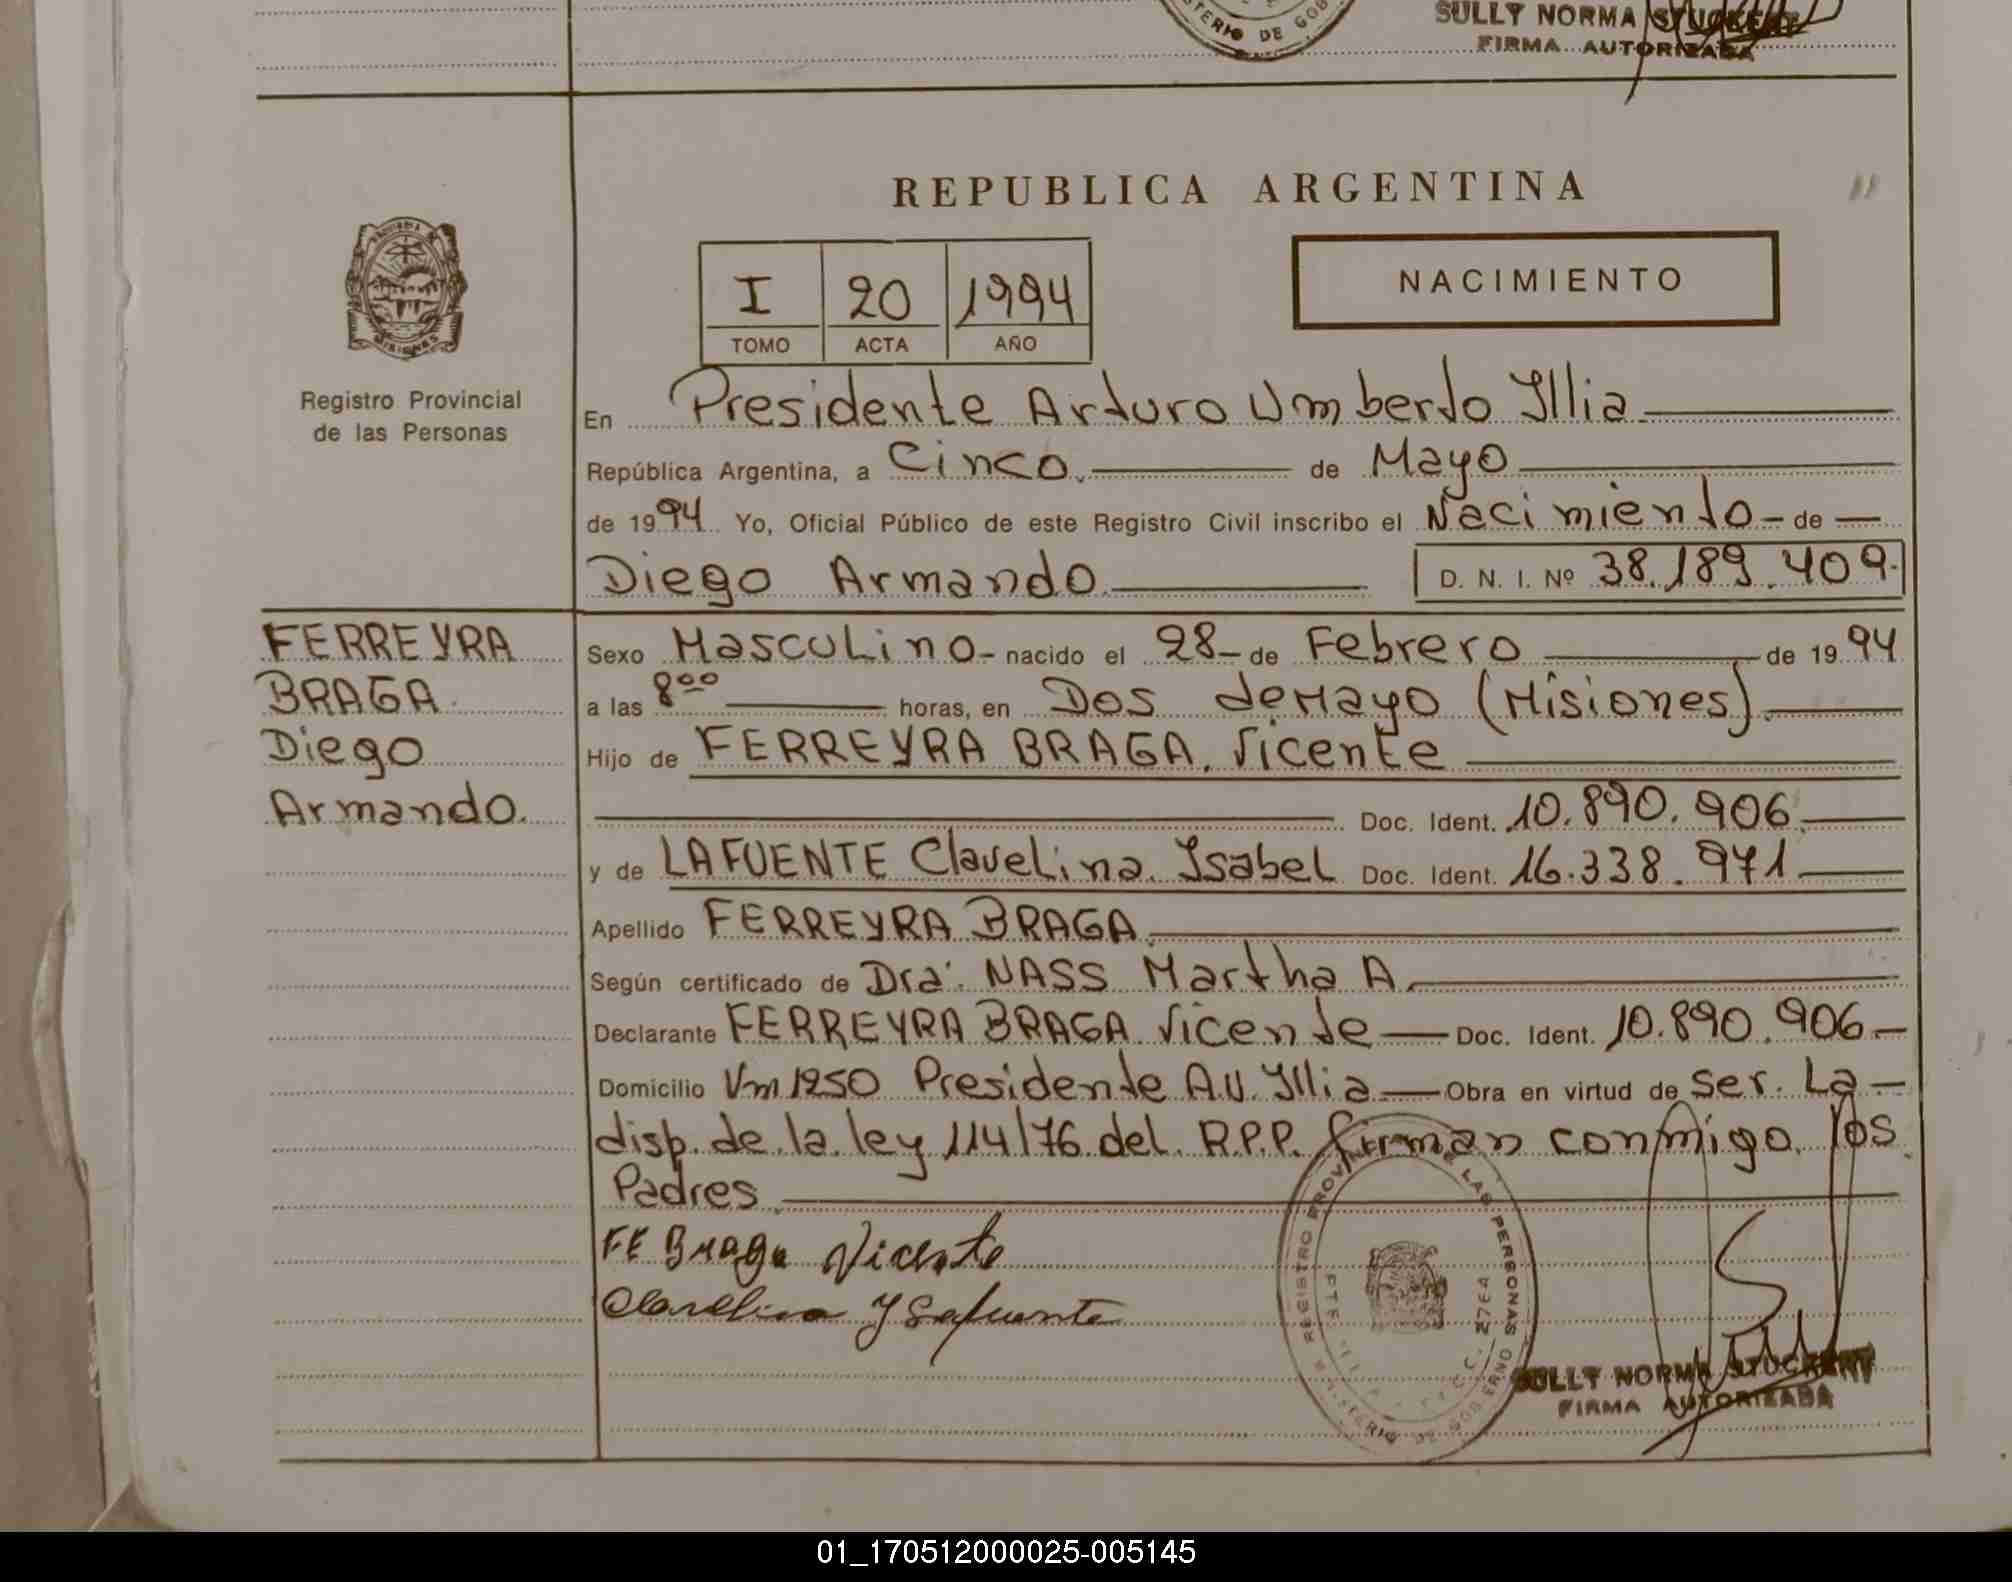 SULLY NORMA STUCKERT
FIRMA AUTORIZADA
REPUBLICA ARGENTINA
I 20 1994
TOMO ACTA AÑO
NACIMIENTO
Registro Provincial
de las Personas
En Presidente Arturo Umberto Illia
República Argentina, a Cinco de Mayo
de 1994 Yo, Oficial Público de este Registro Civil inscribo el Nacimiento - de
Diego Armando D. N. I. Nº 38.189.409.
FERREYRA
BRAGA
Diego
Armando.
Sexo Masculino - nacido el 28 - de Febrero de 1994
a las 8⁰⁰ horas, en Dos de Mayo (Misiones).
Hijo de FERREYRA BRAGA, Vicente
Doc. Ident. 10.890.906.
y de LAFUENTE Clavelina Isabel Doc. Ident. 16.338.971
Apellido FERREYRA BRAGA
Según certificado de Dra. NASS Martha A.
Declarante FERREYRA BRAGA Vicente Doc. Ident. 10.890.906
Domicilio Km 1250 Presidente A.U. Illia Obra en virtud de ser. La
disp. de la ley 114/76 del R.P.P. firman conmigo los
Padres
FE Braga Vicente
Clavelina Y Lafuente
REGISTRO PROVINCIAL DE LAS PERSONAS
MINISTERIO DE GOBIERNO
SULLY NORMA STUCKERT
FIRMA AUTORIZADA
01_170512000025-005145